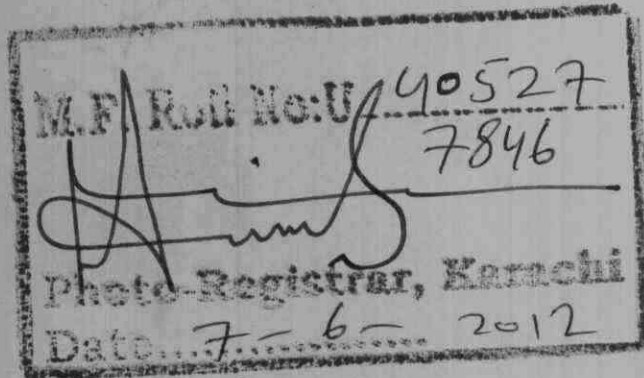 M.F. Roll No:U 40527
7846
Photo-Registrar, Karachi
Date.... 7-6-2012